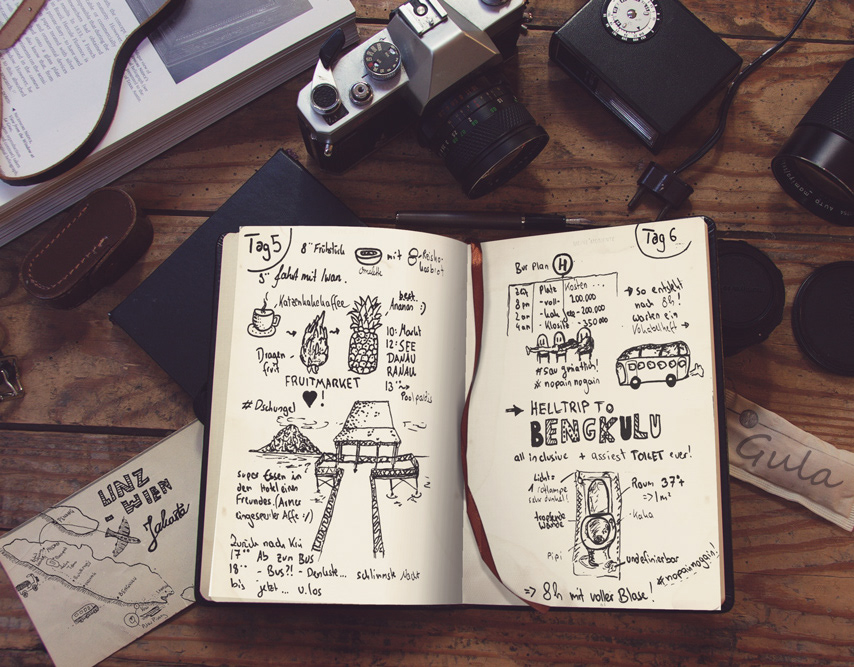 Tag 5
8°° Frühstück
mit
Omlette
9°° fahrt mit Iwan.
Katzenkakekaffee
best.
Ananas :)
Dragon-
fruit
10: Markt
12: SEE
DANAU
RANAU
13
Poolparadis
FRUITMARKET
!
# Dschungel
super Essen in
den Hotel eines
Freundes. (Armer
eingesperrter Affe :/)
Zurück nach
17°° Ab zum BUS
18°° - BUS?! - schlimmste Nacht
bis jetzt... u. los
Tag 6
Bus Plan H
Zeit Platz Kosten ...
8pm - voll - 200.000
2am - 200.000
4am - Klositz - 350.000
→ so entsteht
nach 8h!
warten ein
→
# saugmiatlich!
# nopainnogain
→ HELLTRIP TO
BENGKULU
all inclusive + assiest TOILET ever!
Licht:
1
sehr dunkel!
Raum 37°+
=> 1m²
tropfende
Wände
Kaka
Pipi
undefinierbar
#nopainnogain!
=> 8h mit voller Blase!
LINZ
- WIEN
Jakarta
Gula